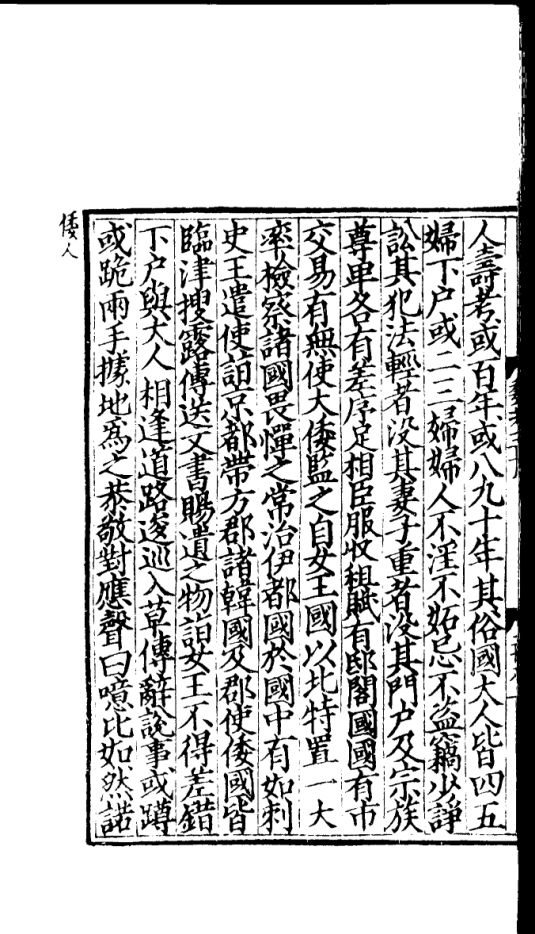 人壽考或百年或八九十年其俗國大人皆四五
婦下户或二三婦婦人不淫不妬忌不盗竊少諍
訟其犯法輕者没其妻子重者没其門户及宗族
尊卑各有差序足相臣服收租賦有邸閣國國有市
交易有無使大倭監之自女王國以北特置一大
率檢察諸國畏憚之常治伊都國於國中有如刺
史王遣使詣京都帶方郡諸韓國及郡使倭國皆
臨津搜露傳送文書賜遺之物詣女王不得差錯
下户與大人相逢道路逡巡入草傳辭說事或蹲
或跪兩手據地爲之恭敬對應聲曰噫比如然諾
倭人